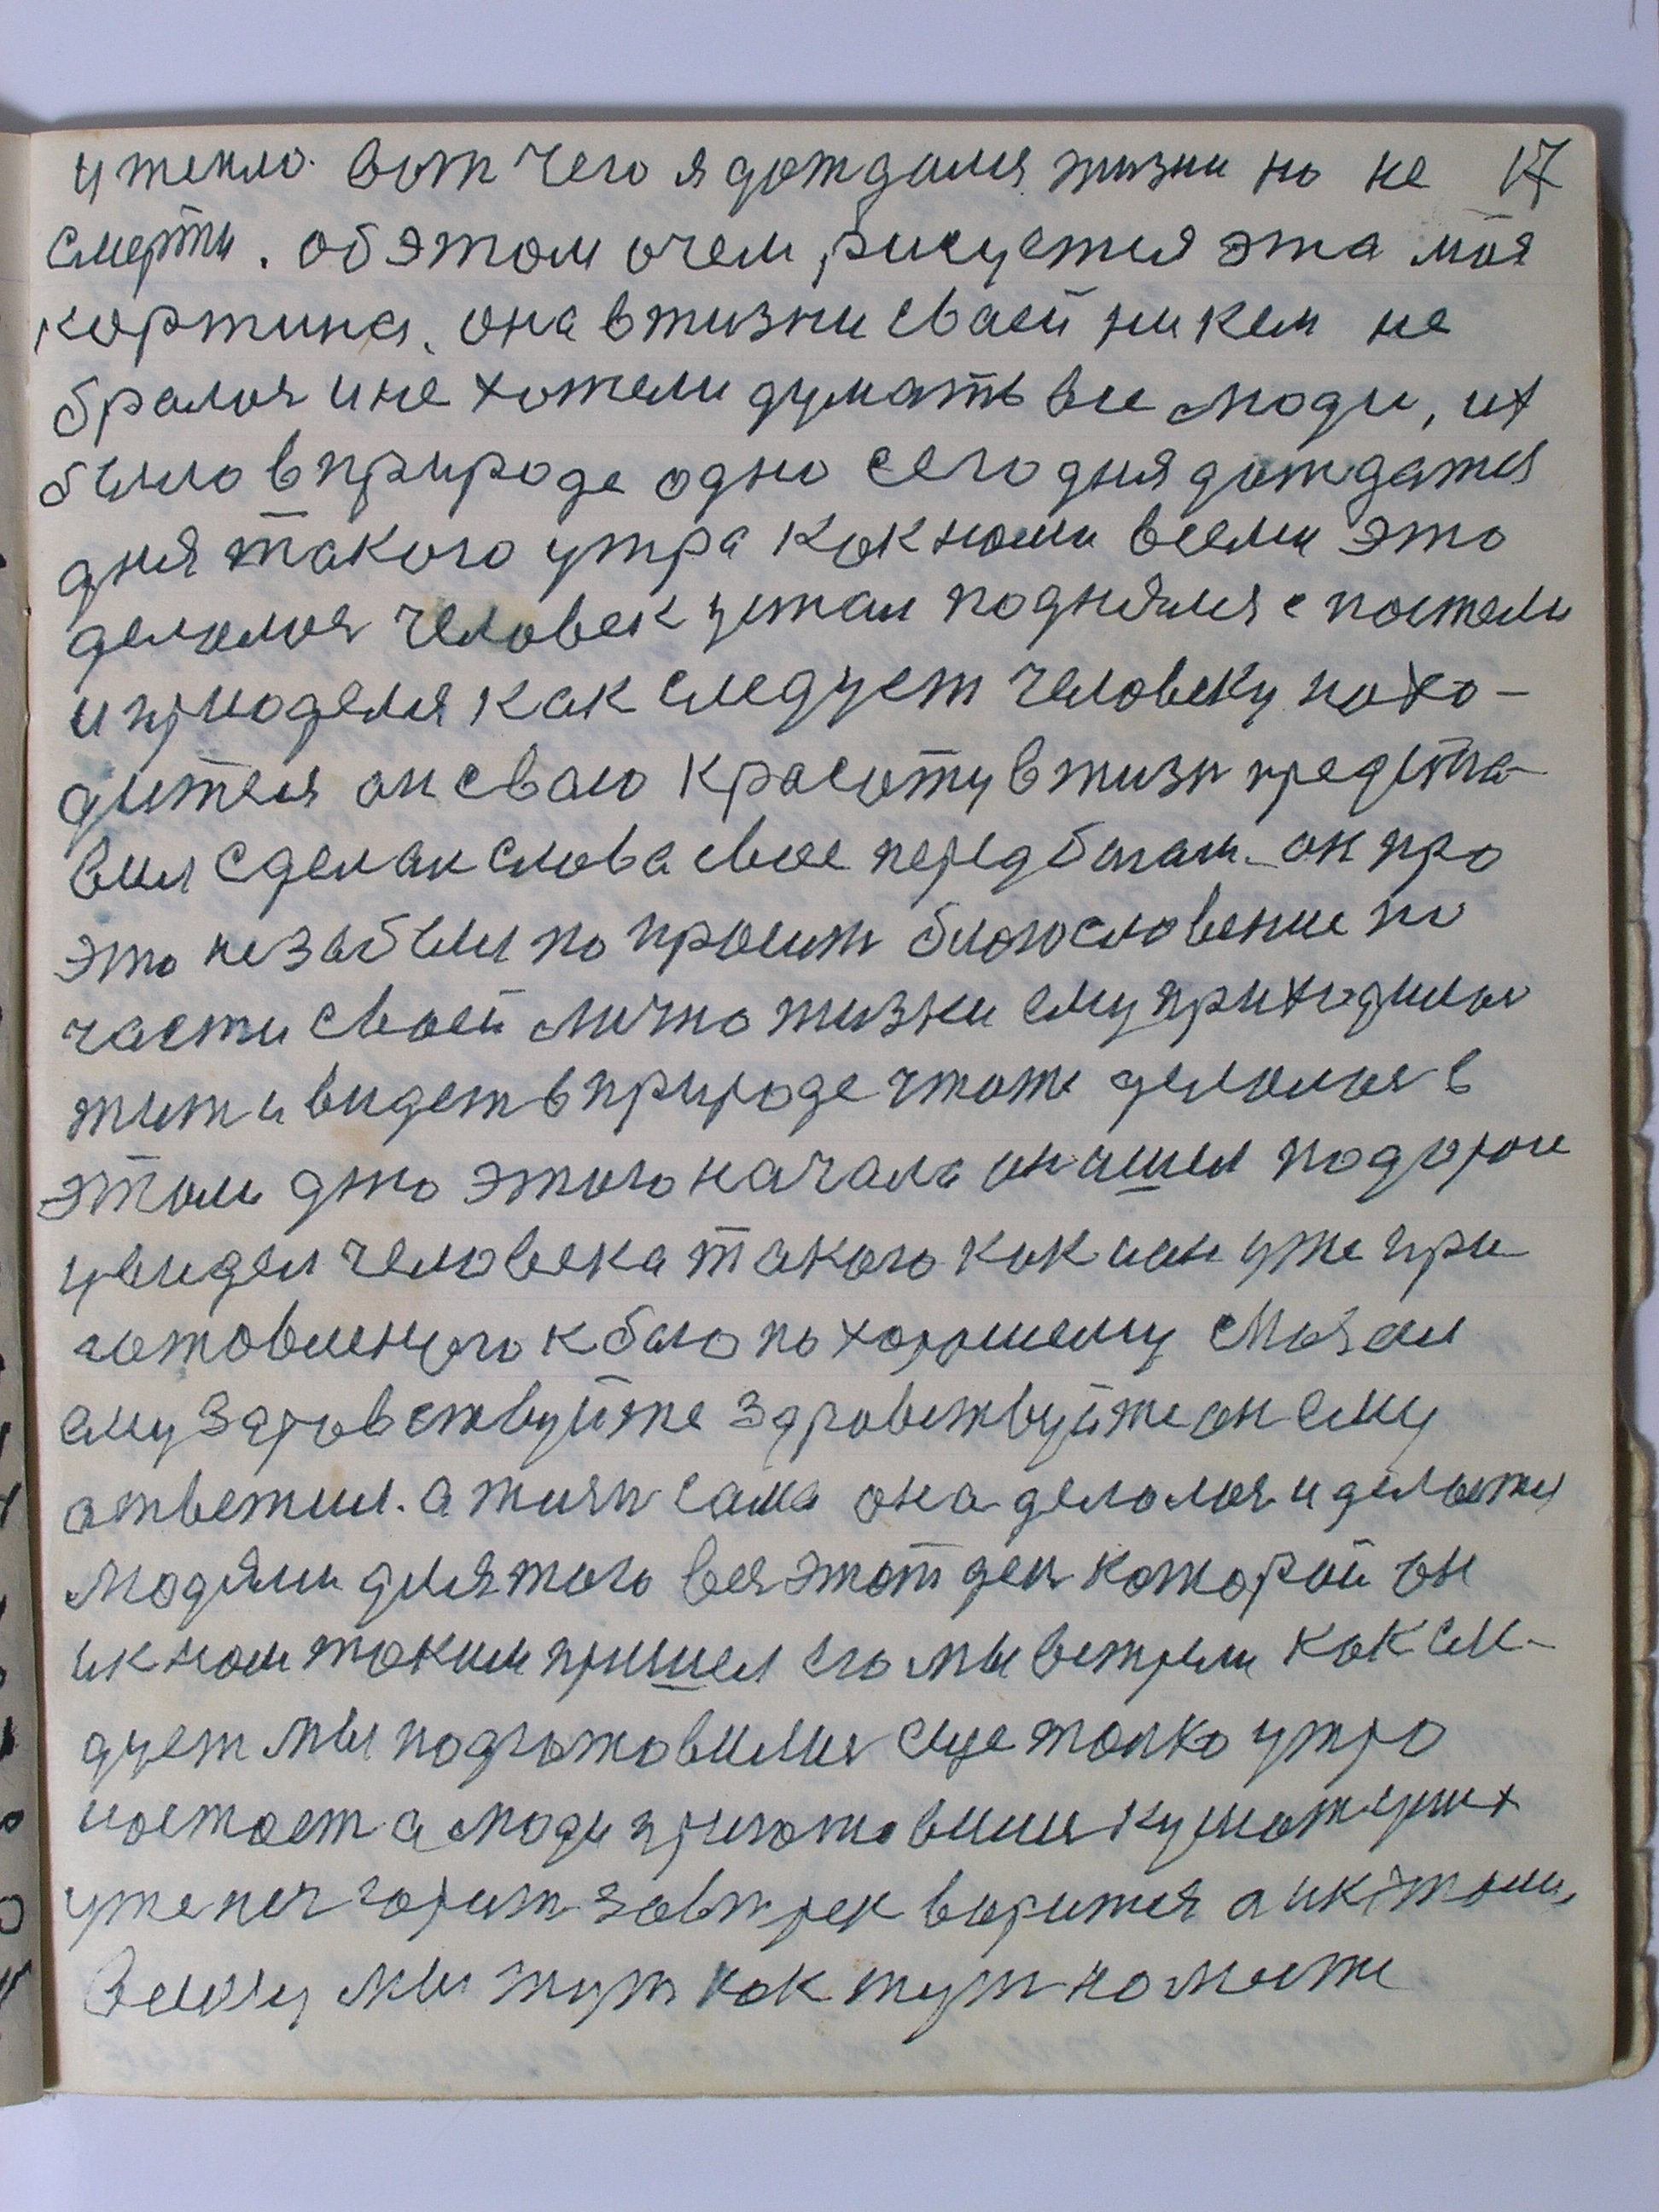 и тепло. вот чего я дождался жизни но не 17
смерти. об этом очем, рисуется эта моя
картина. она в жизни сваей никем не
бралося и не хотели думать все люди, их
было в природе одно сегодня дождатся
дня такого утра как нами всеми это
делалося человек устал поднялся с постели
и приоделся как следует человеку нахо-
дится он сваю красоту в жизн предста-
вил сделан слова свое перед богам. он про
это не забыл попросит благословение по
части своей лично жизни ему приходилос
жит и видет в природе чтоже делалося в
этом дню этого начала он ишел по дороге
увидел человека такого как и он уже при
готовленого к бою по хорошему сказал
ему здравствуйте здравствуйте он ему
атветил. а жизн сама она делалося и делается
людями для того вся этот ден каторай он
и к нам таким пришел его мы встрели как сле-
дует мы подготовилис еще толко утро
настает а люди приготовили кушат у них
уже печ горит завтрек варится а ик этому
всему мы тут как тут на месте